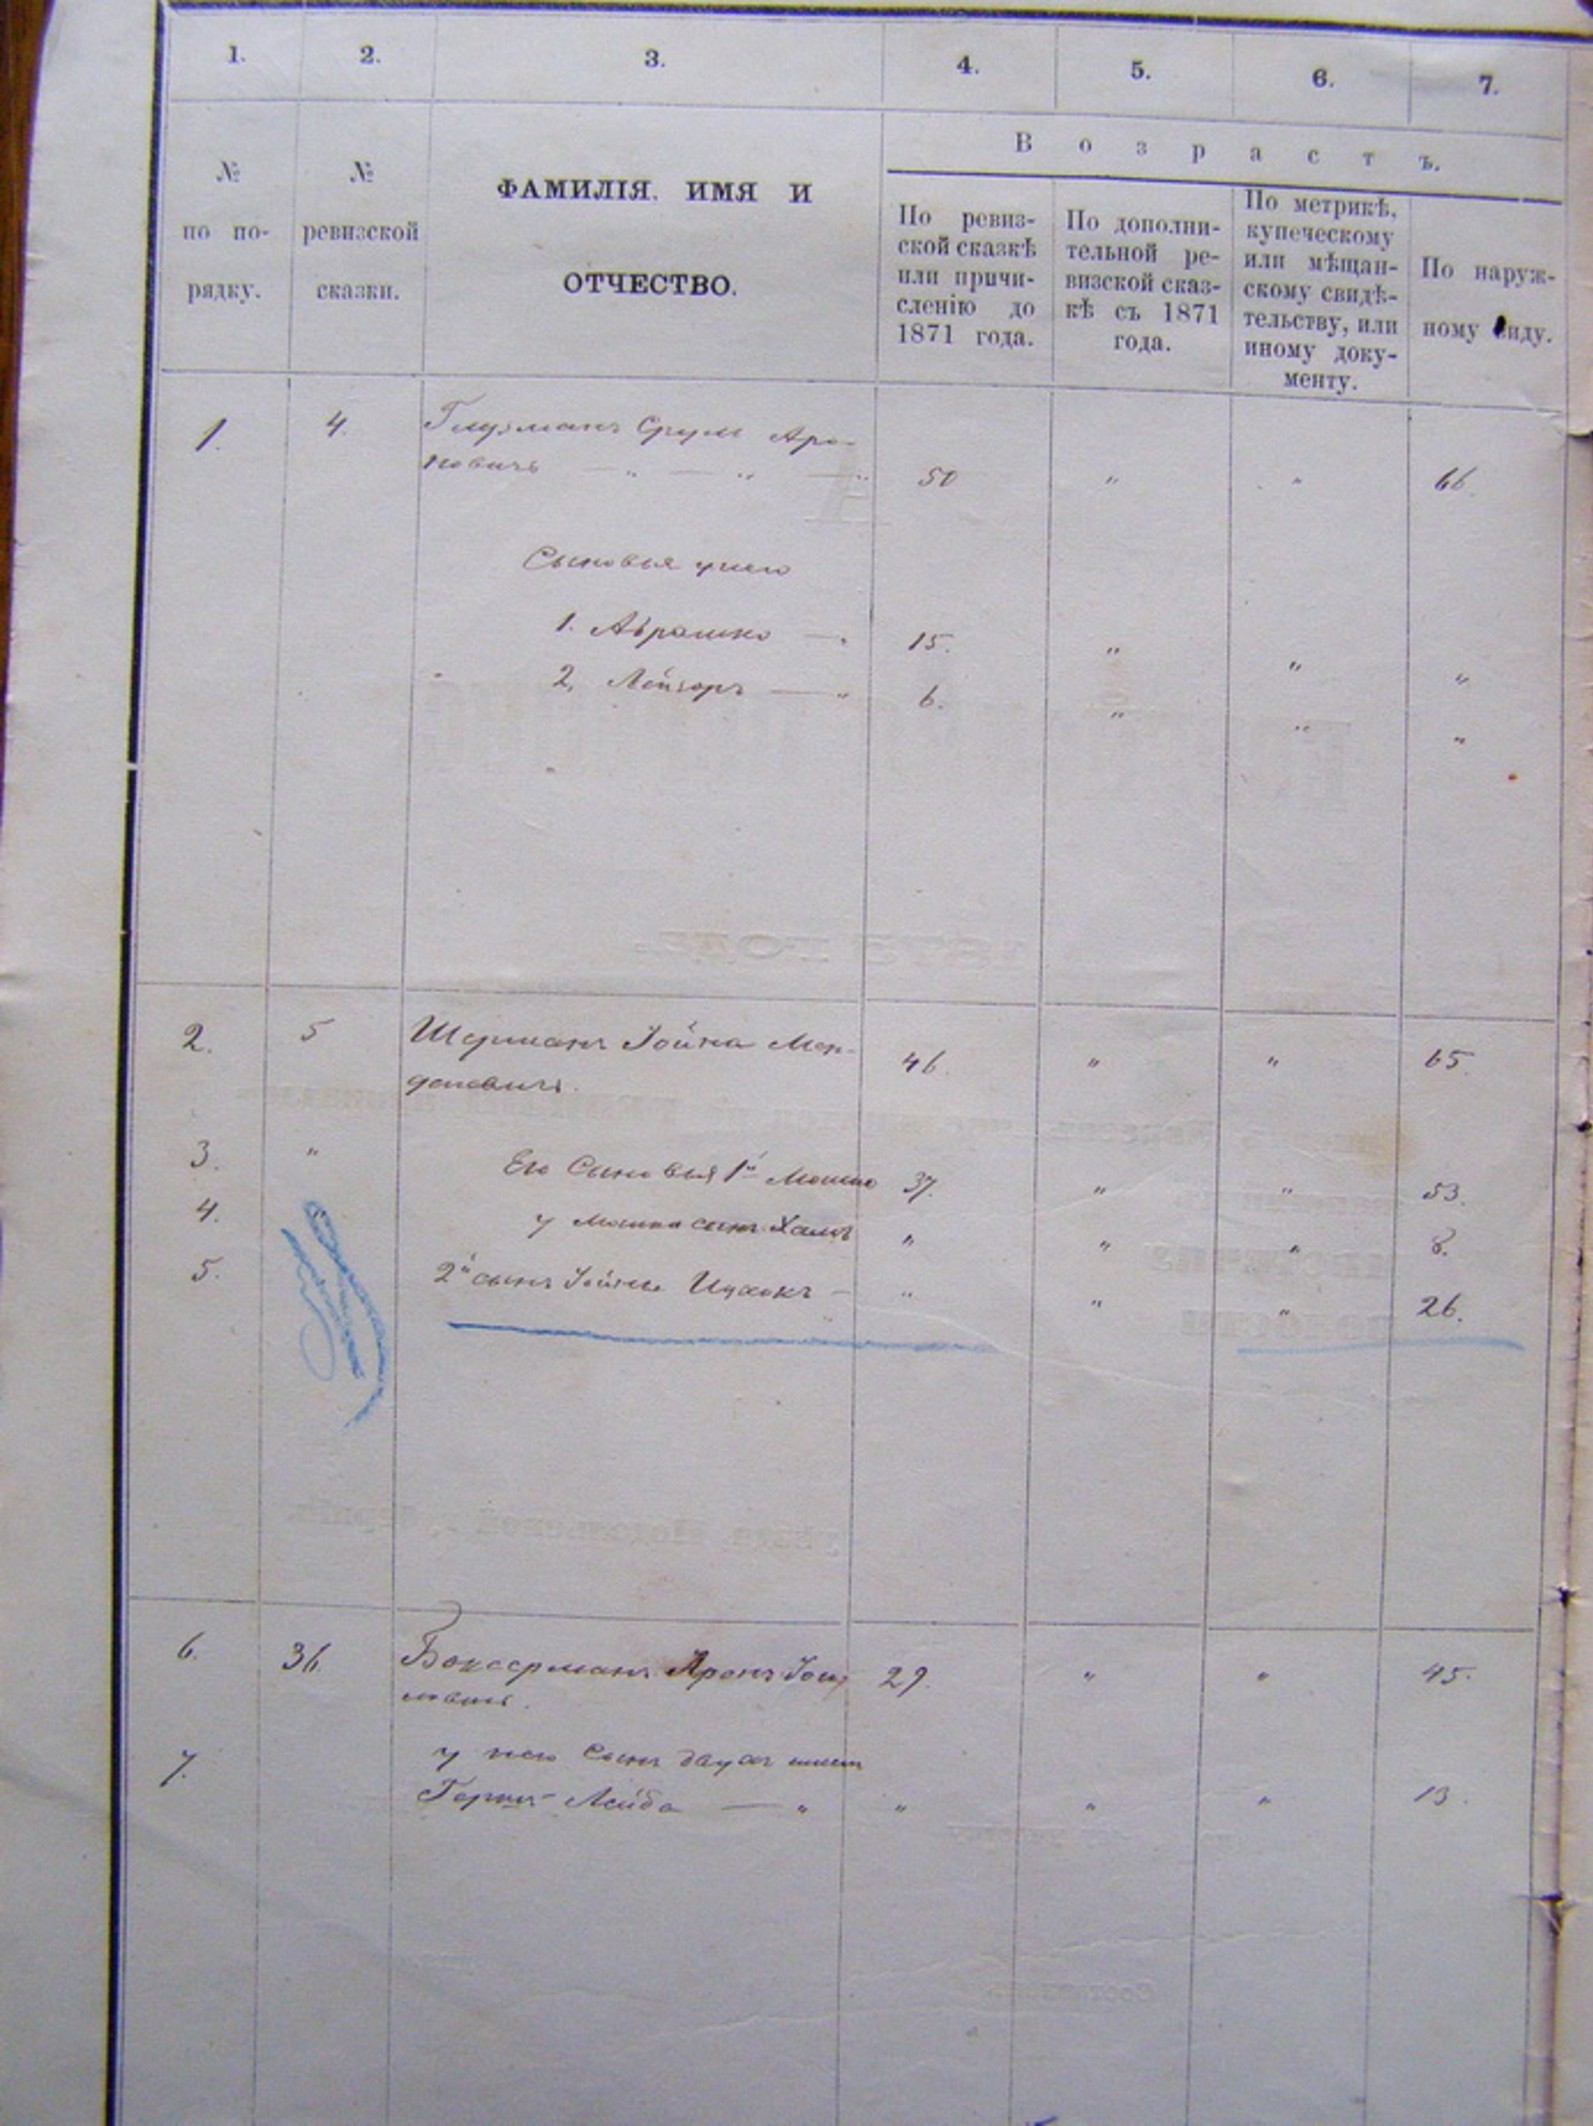 1. 2. 3. 4. 5. 6. 7.
В о з р а с т ъ.
№
по по-
рядку.
№
ревизской
сказки.
ФАМИЛІЯ. ИМЯ И
ОТЧЕСТВО.
По ревиз-
ской сказкѣ
или причи-
сленію до
1871 года.
По дополни-
тельной ре-
визской сказ-
кѣ съ 1871
года.
По метрикѣ,
купеческому
или мѣщан-
скому свидѣ-
тельству, или
иному доку-
менту.
По наруж-
ному виду.
1. 4. Глузманъ Срулъ Аро-
новичъ — „ — „ — „ 50 „ „ 66.
Сыновья у него
1. Аврашко — „ 15. „ „ „
2, Лейзоръ — „ 6. „ „ „
2. 5 Шерманъ Іойна Мен-
делевичъ. 46. „ „ 65.
3. „ Его Сыновья 1й Мошко 37. „ „ 53.
4. у Мошка сынъ „ „ „ 8.
5. 2й сынъ Іойны Ицхокъ — „ „ „ 26.
6. 36. Боксерманъ Аронъ
29. „ „ 45.
7. у него Сынъ
Лейба — „ „ „ „ 13.